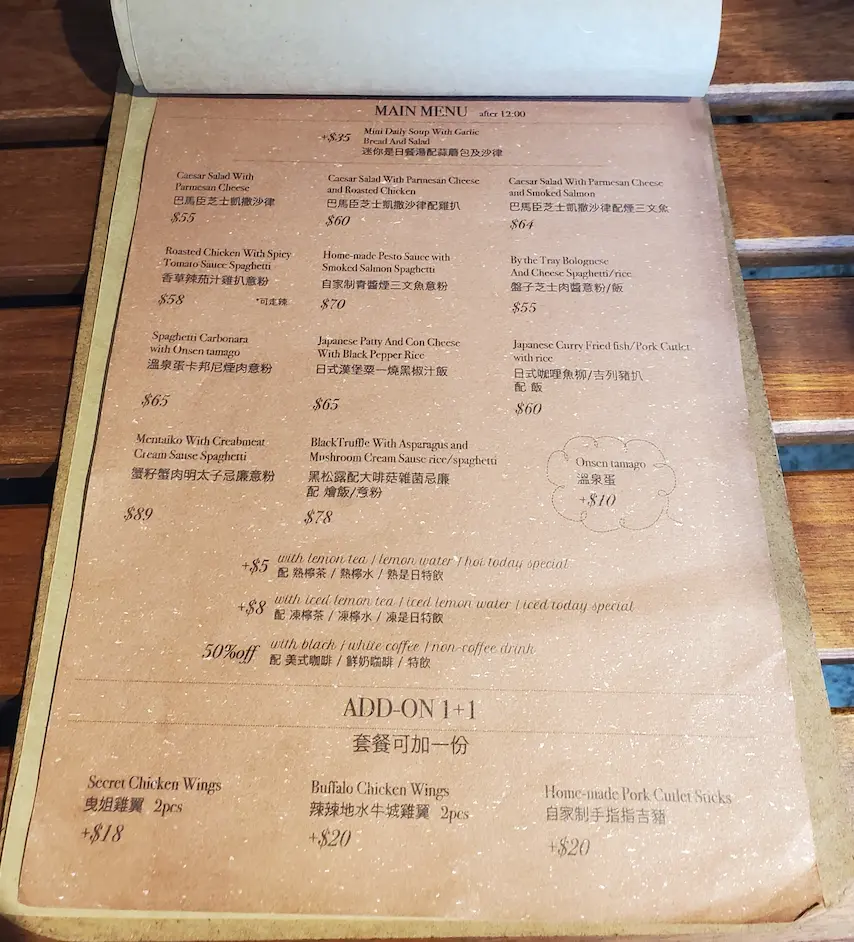 MAIN MENU after 12:00
+$35 Mini Daily Soup With Garlic
Bread And Salad
迷你是日餐湯配蒜蓉包及沙律
Caesar Salad With
Parmesan Cheese
巴馬臣芝士凱撒沙律
$55
Caesar Salad With Parmesan Cheese
and Roasted Chicken
巴馬臣芝士凱撒沙律配雞扒
$60
Caesar Salad With Parmesan Cheese
and Smoked Salmon
巴馬臣芝士凱撒沙律配煙三文魚
$64
Roasted Chicken With Spicy
Tomato Sauce Spaghetti
香草辣茄汁雞扒意粉
$58 *可走辣
Home-made Pesto Sauce with
Smoked Salmon Spaghetti
自家制青醬煙三文魚意粉
$70
By the Tray Bolognese
And Cheese Spaghetti/rice
盤子芝士肉醬意粉/飯
$55
Spaghetti Carbonara
with Onsen tamago
溫泉蛋卡邦尼煙肉意粉
$65
Japanese Patty And Con Cheese
With Black Pepper Rice
日式漢堡粟一燒黑椒汁飯
$65
Japanese Curry Fried fish/Pork Cutlet
with rice
日式咖哩魚柳/吉列豬扒
配 飯
$60
Mentaiko With Creabmeat
Cream Sause Spaghetti
蟹籽蟹肉明太子忌廉意粉
$89
BlackTruffle With Asparagus and
Mushroom Cream Sause rice/spaghetti
黑松露配大啡菇雜菌忌廉
配 燴飯/意粉
$78
Onsen tamago
溫泉蛋
+$10
+$5 with lemon tea / lemon water / hot today special
配 熱檸茶 / 熱檸水 / 熱是日特飲
+$8 with iced lemon tea / iced lemon water / iced today special
配 凍檸茶 / 凍檸水 / 凍是日特飲
50%off with black / white coffee / non-coffee drink
配 美式咖啡 / 鮮奶咖啡 / 特飲
ADD-ON 1+1
套餐可加一份
Secret Chicken Wings
曳姐雞翼 2pcs
+$18
Buffalo Chicken Wings
辣辣地水牛城雞翼 2pcs
+$20
Home-made Pork Cutlet Sticks
自家制手指指吉豬
+$20